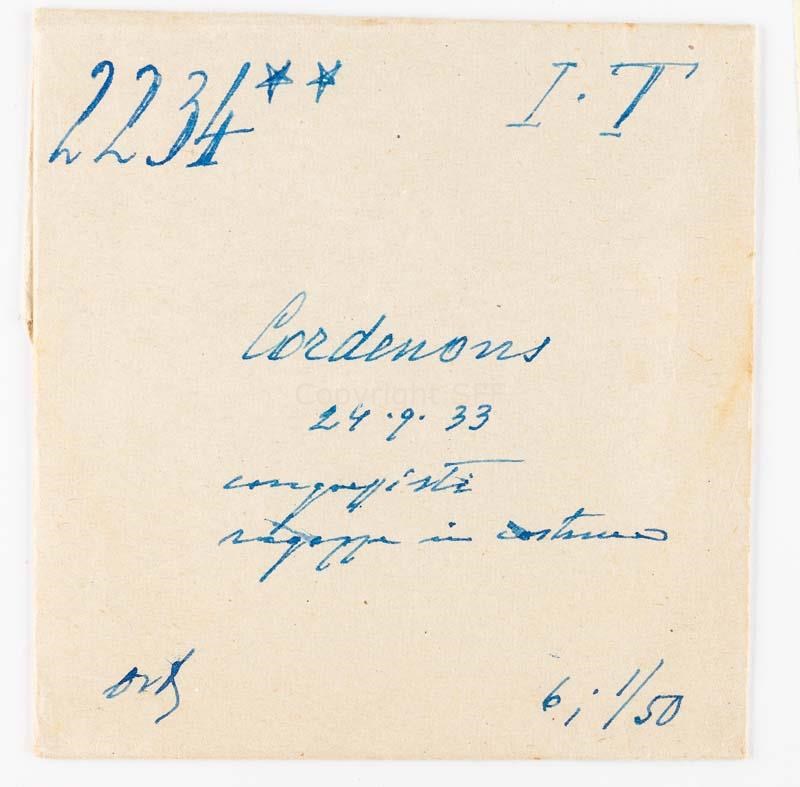 2234** I·T
Cordenons
Copyright SFF
24·9·33
congressisti
ragazze in costume
6; 1/50